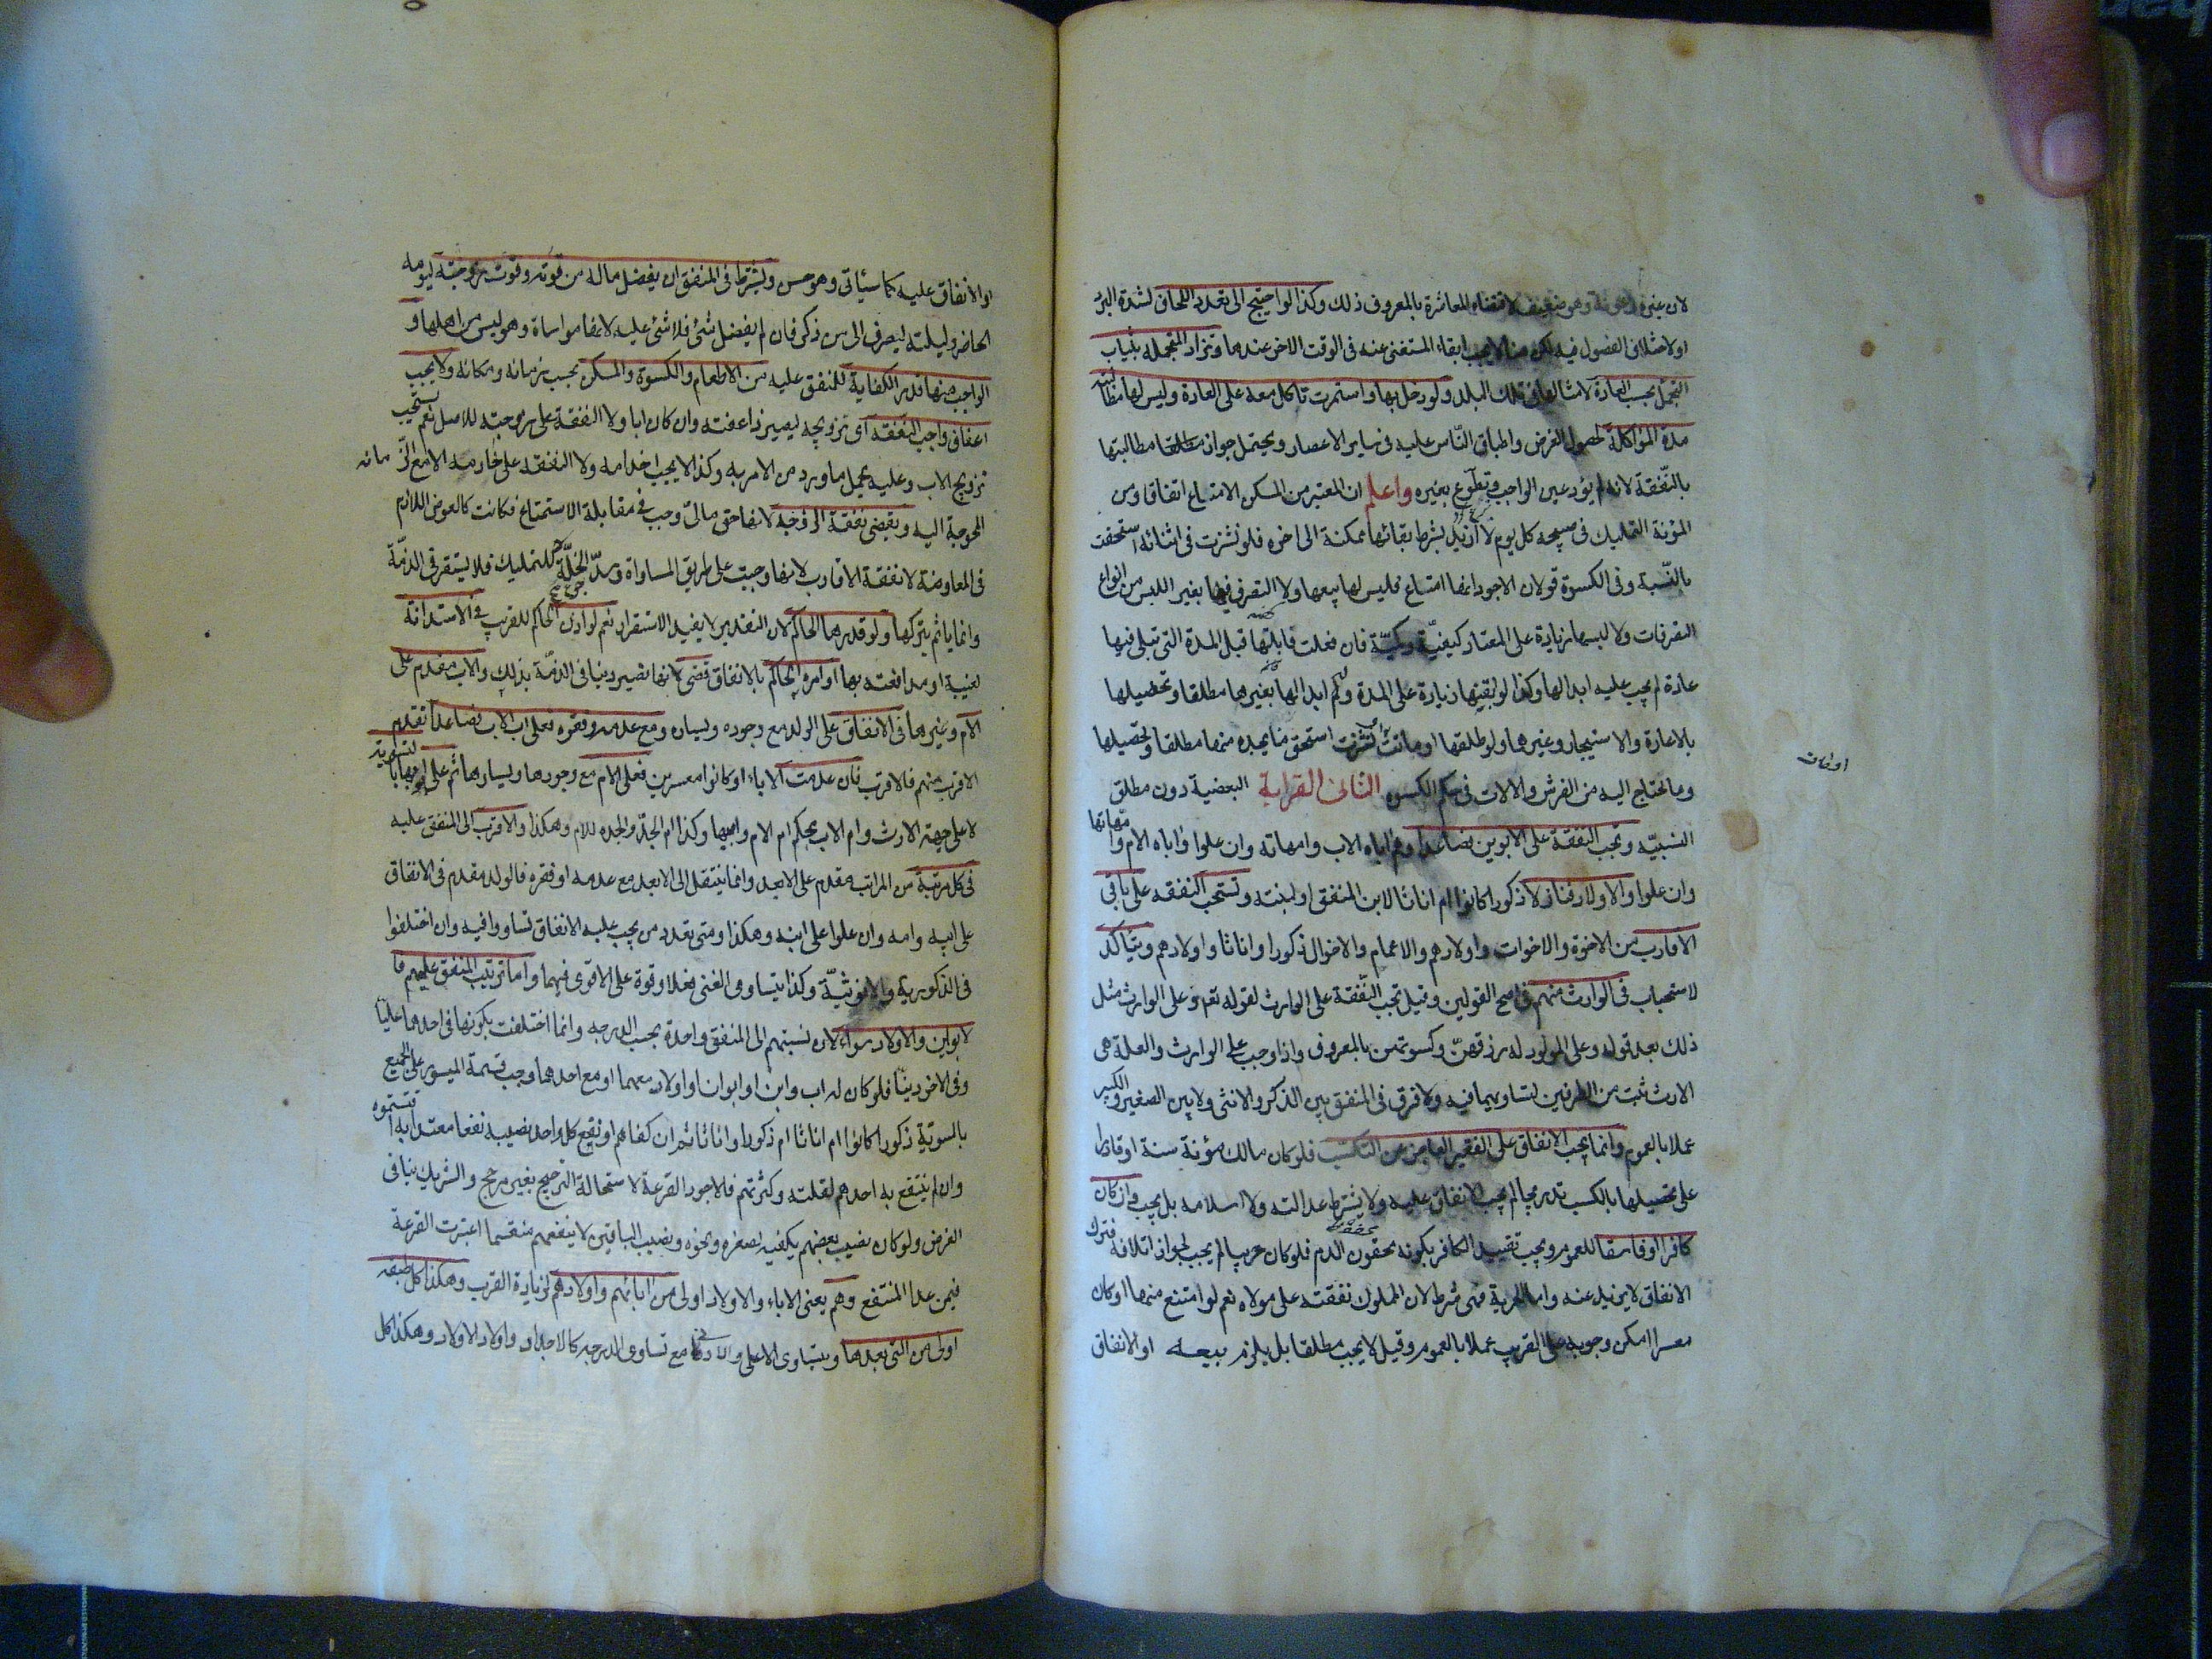 لان عينه وهو ضعيف لاقتضاء المعاشرة بالمعروف ذلك وكذا لو احتيج الى تعدد اللحاف لشدة البرد
او لاختلاف الفصول فيه لكن هنا لا يجب ابقاء المستغنى عنه في الوقت الاخر عندها وتزاد المتجملة بثياب
التجمل بحسب العادة لامثالها في تلك البلد ولو دخل بها واستمرت تاكل معه على العادة فليس لها مطالبته
مدة المؤاكلة لحصول الغرض واطباق النّاس عليه في ساير الاعصار ويحتمل جواز مطالبتها
بالنّفقة لانه لم يؤد عين الواجب وتطوع بغيره واعلم ان المعتبر من المسكن الامتاع اتفاقا ومن
المؤنة التمليك في صبيحة كل يوم لا ازيد بشرط بقائها ممكنة الى اخره فلو نشزت في اثنائه استحقت
بالنّسبة وفي الكسوة قولان الاجود انها امتاع فليس لها بيعها ولا التصرف فيها بغير اللبس من انواع
التصرفات ولا لبسها زيادة على المعتاد كيفيّة وكميّة فان فعلت فابلتها قبل المدة التي تبلى فيها
عادة لم يجب عليه ابدالها وكذا لو ابقيتها زيادة على المدة وله ابدالها بغيرها مطلقا وتحصيلها
بالاعارة والاستيجار وغيرها ولو طلقها او ماتت او نشزت استحق ما يجده منها مطلقا وتحصيلها
وما تحتاج اليه من الفرش والالات في حكم الكسوة الثاني القرابة البعضية دون مطلق
النسبيّة وتجب النفقة على الابوين فصاعدا وهم اباء الاب وامهاته وان علوا واباء الام وامهاتها
وان علوا والاولاد فنازلا ذكورا كانوا ام اناثا لابن المنفق او لبنته وتستحب النفقة على باقي
الاقارب من الاخوة والاخوات واولادهم والاعمام والاخوال ذكورا واناثا واولادهم ويتاكد
لاستحباب في الوارث منهم في اصح القولين وقيل تجب النّفقة على الوارث لقوله تعم وعلى الوارث مثل
ذلك بعد قوله وعلى المولود له رزقهنّ وكسوتهن بالمعروف واذا وجب على الوارث والعلة هى
الارث ثبت من الطرفين لتساويهما فيه ولا فرق في المنفق بين الذكر والانثى ولا بين الصغير والكبير
عملا بالعموم وانما يجب الانفاق على الفقير العاجز عن التكسب فلو كان مالك مؤنة سنة او قادرا
على تحصيلها بالكسب تدريجا لم يجب الانفاق عليه ولا يشترط عدالته ولا اسلامه بل يجب وان كان
كافرا او فاسقا للعموم ويجب تقييد الكافر بكونه محقون الدم فلو كان حربيا لم يجب لجواز اتلافه فترك
الانفاق لا يزيد عنه واما الحرية فهى شرط لان المملوك نفقته على مولاه نعم لو امتنع منها او كان
معسرا امكن وجوبه على القريب عملا بالعموم وقيل لا يجب مطلقا بل يلزم ببيعه او الانفاق
او الانفاق عليه كما سيئاتي وهو حسن ويشترط في المنفق ان يفضل ماله من قوته وقوت زوجته ليومه
الحاضر وليلته ليصرف الى من ذكر فان لم يفضل شئ فلا شئ عليه لانها مواساة وهو ليس من اهلها و
الواجب منها قدر الكفاية للمنفق عليه من الاطعام والكسوة والمسكن بحسب زمانه ومكانه ولا يجب
اعفاف واجب النّفقة اى تزويجه ليصير ذا عفة وان كان ابا ولا النفقة على زوجته للاصل نعم يستحب
تزويج الاب وعليه يحمل ما ورد من الامر به وكذا لا يجب اخدامه ولا النفقة على خادمه الا مع الزّمانه
المحوجة اليه ويقضى نفقة الزوجة لانها حق مالىّ وجب في مقابلة الاستمتاع فكانت كالعوض اللازم
في المعاوضة لا نفقة الاقارب لانها وجبت على طريق المساواة وسدّ الخلّة لا للتمليك فلا يستقر في الذمّة
وانما ياثم بتركها ولو قدرها الحاكم لان التقدير لا يفيد الاستقرار نعم لو اذن الحاكم للقريب في الاستدانة
لغيبته او مدافعته بها او امره الحاكم بالانفاق قضى لانها تصير دينا في الذمّة بذلك والاب مقدم على
الام وغيرها في الانفاق على الولد مع وجوده ويساره ومع عدمه او فقره فعلى اب الاب فصاعدا تقدم
الاقرب منهم فالاقرب فان عدمت الاباء او كانوا معسرين فعلى الام مع وجودها ويسارها ثم على ابويها بالسّوية
لا على جهة الارث وام الاب بحكم ام الام وابيها وكذا ام الجدّ والجدة للام وهكذا والاقرب الى المنفق عليه
في كل مرتبة من المراتب مقدم على الابعد وانما ينتقل الى الابعد مع عدمه او فقره فالولد مقدم في الانفاق
على ابيه وامه وان علوا على ابنه وهكذا ومتى تعدد من يجب عليه الانفاق تساووا فيه وان اختلفوا
في الذكورية والانوثيّة وكذا يتساوى الغنى فعلا وقوة على الاقوى فيهما واما ترتيب المنفق عليهم فا
لابوان والاولاد سواء لان نسبتهم الى المنفق واحدة بحسب الدرجة وانما اختلفت بكونها في احدهما عليا
وفي الاخر دنيا فلو كان له اب وابن او ابوان واولاد معهما او مع احدهما وجب قسمة الميسور على الجميع
بالسوية ذكورا كانوا ام اناثا ام ذكورا واناثا ثم ان كفاهم او نفع كل واحد نصيبه نفعا معتدا به اقتسموه
وان لم ينتفع به احدهم لقلته وكثرتهم فالاجود القرعة لاستحالة الترجيح بغير مرجح والتشريك ينافي
الغرض ولو كان نصيب بعضهم يكفيه لصغره ونحوه ونصيب الباقين لا ينفعهم منقسما اعتبرت القرعة
فيمن عدا المنتفع وهم يعنى الاباء والاولاد اولى من ابائهم واولادهم لزيادة القرب وهكذا كل طبقه
اولى من التى بعدها ويتساوى الاعلى والادنى مع تساوى الدرجة كالاجداد واولاد الاولاد وهكذا كل